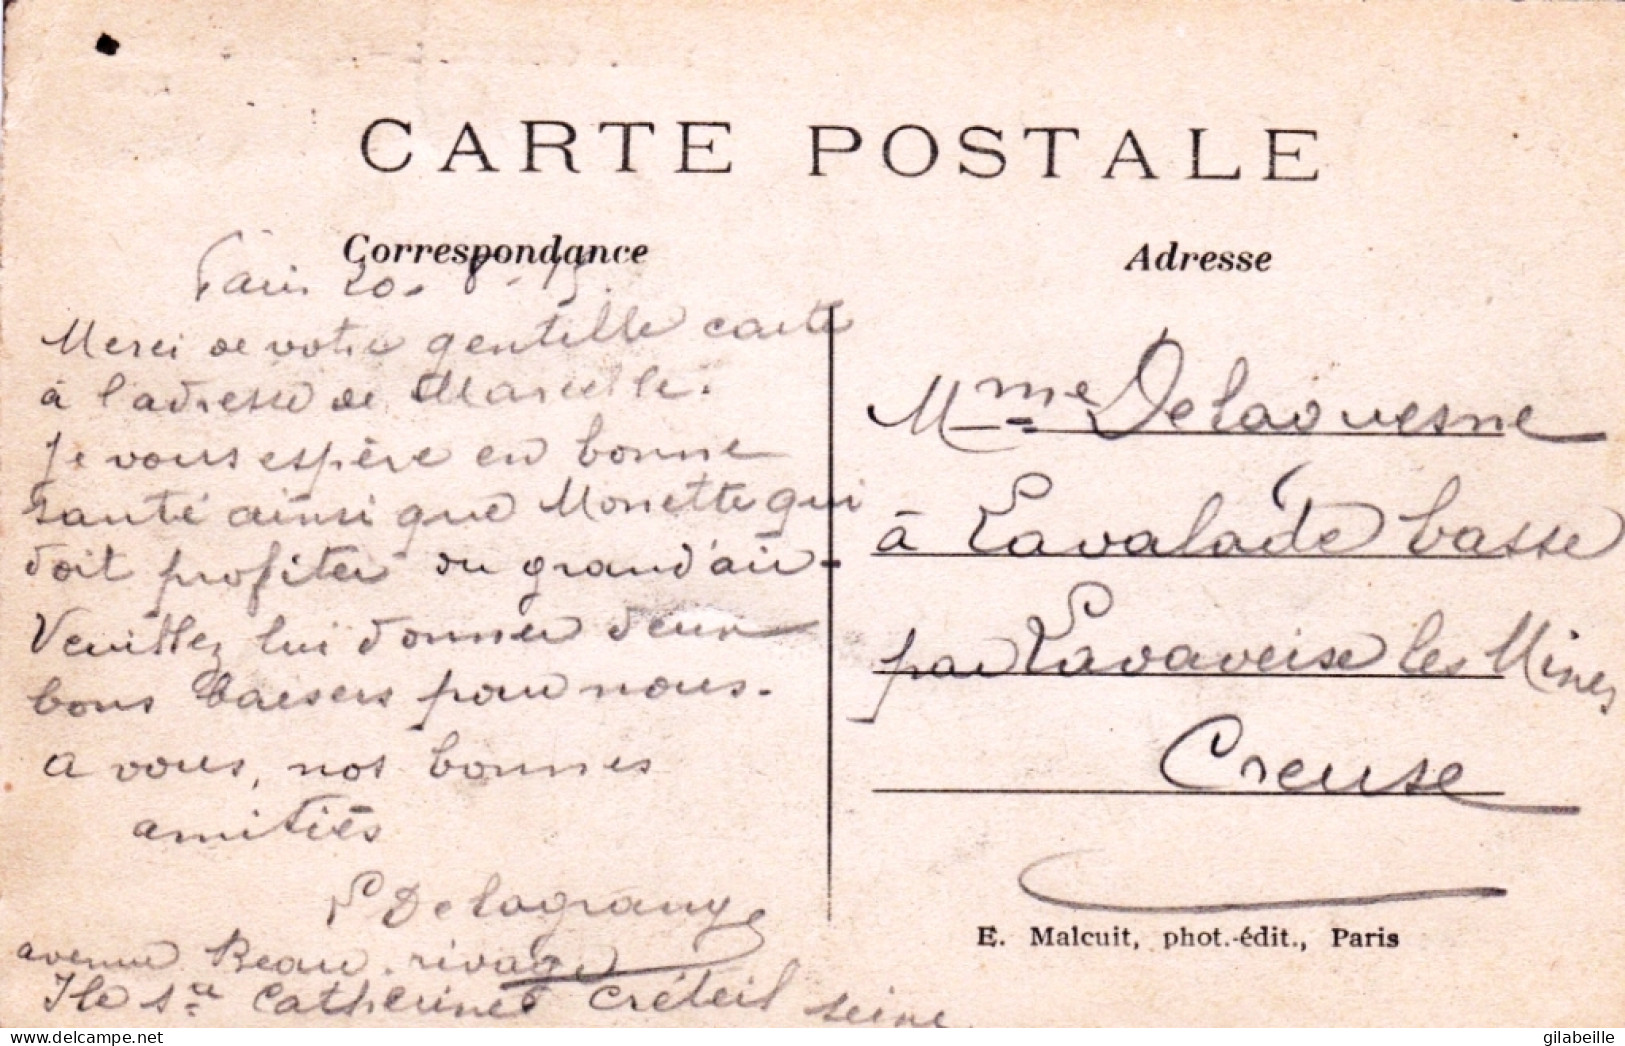 CARTE POSTALE
Correspondance
Adresse
Paris 20. 8. 15.
Merci de votre gentille carte
à l'adresse de Marcelle.
Je vous espère en bonne
santé ainsi que Monette qui
doit profiter du grand'air.
Veuillez lui donner deux
bons baesers pour nous.
a vous, nos bonnes
amitiés
Delagrange
avenue Beau-rivage
Ile Ste Catherine Créteil seine
Mme Delaquesne
à Lavalade basse
par Lavaveise les Mines
Creuse
E. Malcuit, phot.-édit., Paris
delcampe.net
gilabeille